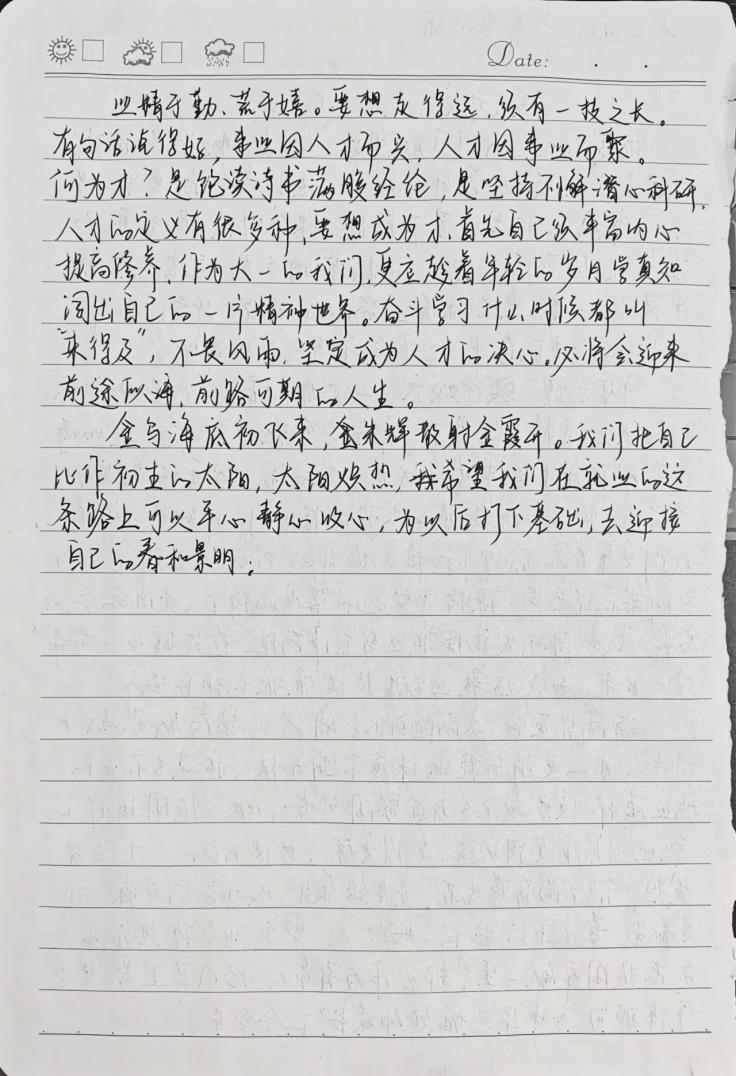 Date:
业精于勤、荒于嬉。要想走得远,须有一技之长。
有句话说得好,事业因人才而兴,人才因事业而聚。
何为才?是饱读诗书满腹经纶,是坚持不懈潜心科研,
人才的定义有很多种,要想成为才,首先自己须丰富内心
提高修养,作为大一的我们,更应趁着年轻的岁月学真知
闯出自己的一片精神世界。奋斗学习什么时候都叫
“来得及”,不畏风雨,坚定成为人才的决心。必将会迎来
前途似海,前路可期的人生。
金乌海底初飞来,朱辉散射金霞开。我们把自己
比作初生的太阳,太阳炽热,我希望我们在就业的这
条路上可以平心静心收心,为以后打下基础,去迎接
自己的春和景明。